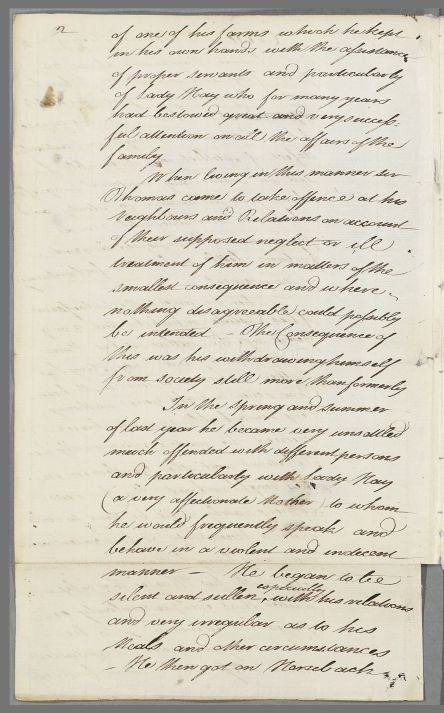 2
of one of his farms which he kept
in his own hands with the assistance
of proper servants and particularly
of Lady Hay who for many years
had bestowed great and very success-
ful attention on all the affairs of the
family.
When living in this manner Sir
Thomas came to take offence at his
Neighbours and Relations on account
of their supposed neglect or ill
treatment of him in matters of the
smallest consequence and where
nothing disagreeable could possibly
be intended – The Consequence of
this was his withdrawing himself
from society still more than formerly
In the spring and summer
of last year he became very unsettled
much offended with different persons
and particularly with Lady Hay
(a very affectionate Mother) to whom
he would frequently speak and
behave in a violent and indecent
manner – He began to be
silent and sullen, especially with his relations
and very irregular as to his
Meals and other circumstances
– He then got on Horseback